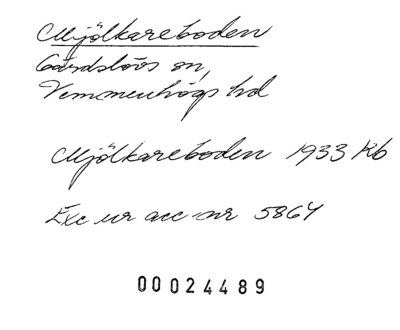 Mjölkareboden
Gärdslövs sn,
Vemmenhögs hd
Mjölkareboden 1933 Kb
Exc ur acc nr 5864
00024489